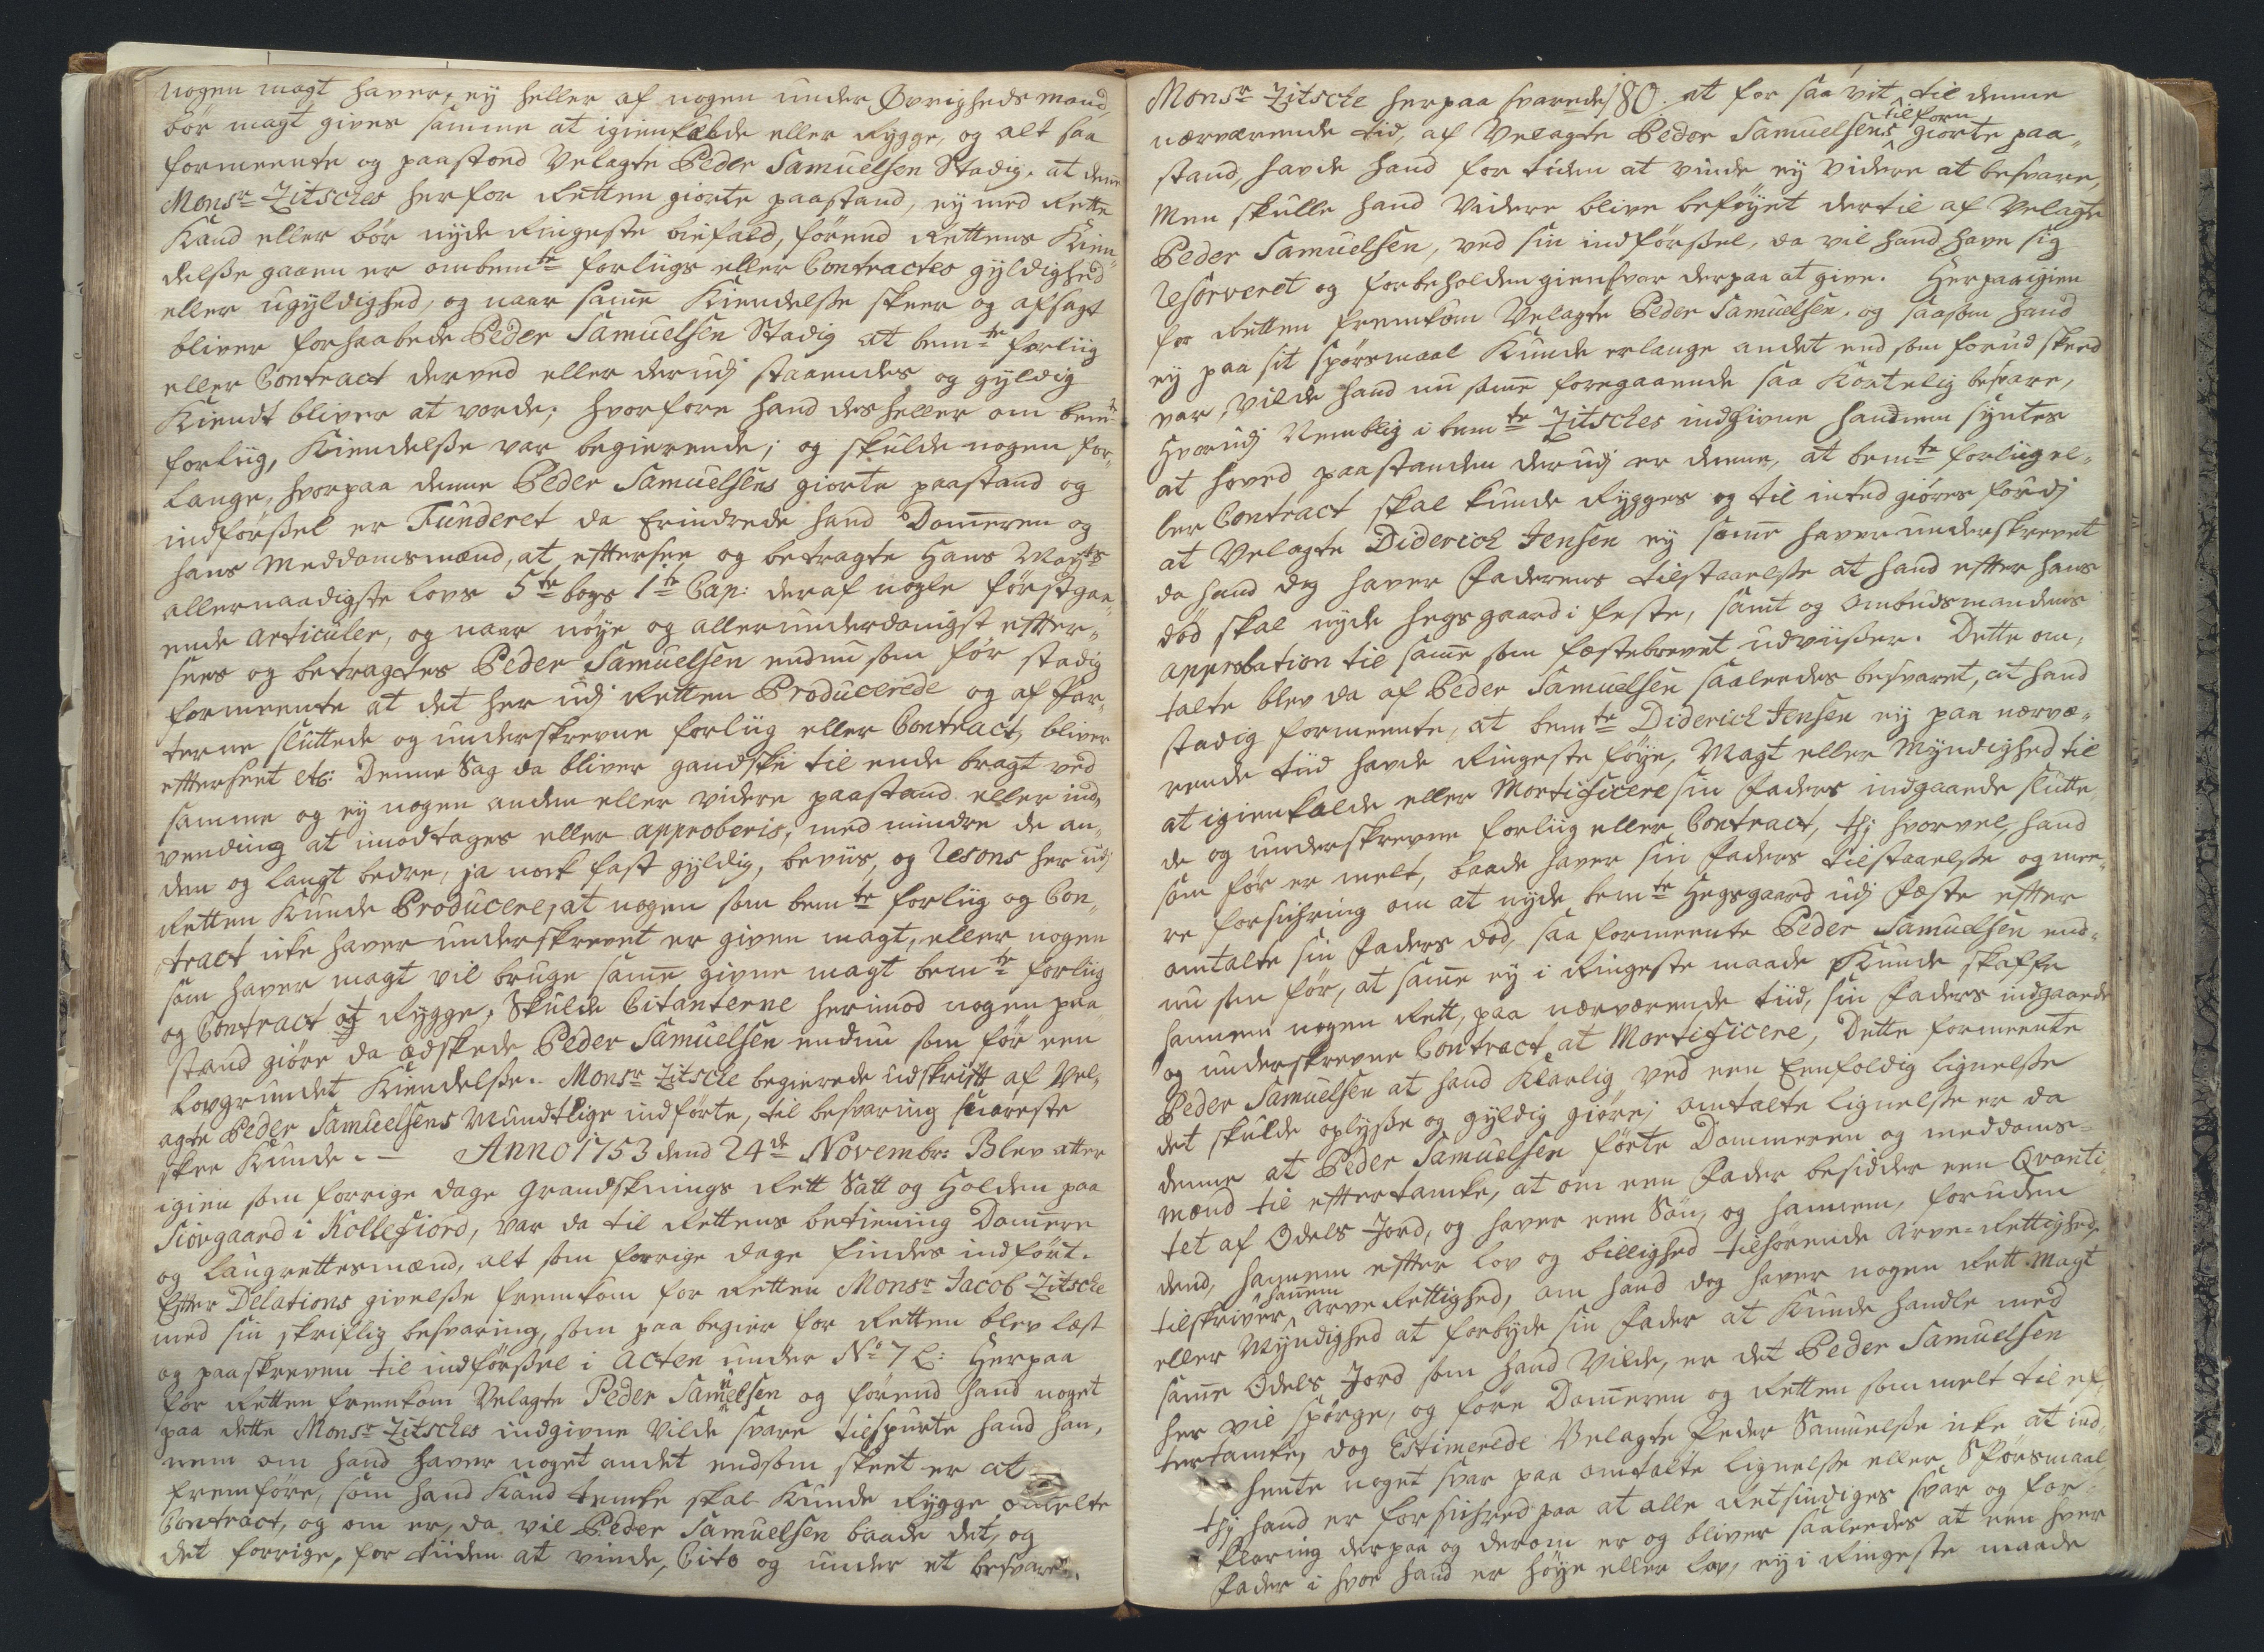 nogen magt haver, ey heller af nogen under Øvrigheds mand
bör magt gives samme at igienkalde eller Rygge, og alt saa
formeente og paastoed Velagte Peder Samuelsen Stadig, at denne
Monsr Zitsches her for Retten giorte paastand, ey med Rette
Kand eller bör nyde Ringeste biefald, förend Rettens Kien¬
delsse gaaen er ombemte forliigs eller Contractes gyldighed
eller ugyldighed, og naar samme Kiendelsse skeer og afsagt
bliver forhaabede Peder Samuelsen Stadig at bemte forliig
eller Contract derved eller derudj staaendes og gyldig
Kiendt bliver at vorde; hvorfore hand desheller om bemte
forliig, Kiendelsse var begierende; og skulde nogen for¬
lange, hvorpaa denne Peder Samuelsens giorte paastand og
indförssel er Funderet da Erindrede hand Domeren og
hans meddomsmænd, at eftersee og betragte Hans Mayts
allernaadigste Lovs 5te bogs 1te Cap: deraf nogle förstgaa¬
ende Articuler, og naar nöye og allerunderdanigst efter¬
sees og betragtes Peder Samuelsen endnu som för stadig
formeente at det her udj Retten Producerede og af Par¬
terne sluttede og underskrevne forliig eller Contract, bliver
efterseet etc: Denne Sag da bliver gandske til ende bragt ved
samme og ey nogen anden eller videre paastand eller ind¬
vending at imodtages eller approberis, med mindre de an¬
den og langt bedre, ja nock fast gyldig, beviis, og Resons her udj
Retten Kunde Producere, at nogen som bemte forliig og Con¬
tract icke haver underskrevet er given magt, eller nogen
som haver magt vil bruge samme givne magt bemte forliig
og Contract at Rygge, Skulde Citanterne herimod nogen paa¬
stand giöre da ædskede Peder Samuelsen endnu som för een
Lovgrundet Kiendelsse. Monsr Zitsche begierede udskrift af Vel¬
agte Peder Samuelsens Mundtlige indförte, til besvaring snareste
skee Kunde. — Anno 1753 dend 24de Novembr: Blev atter
igien som forrige dage Grandsknings Rett Satt og Holden paa
Siovgaard i Kollefiord, var da til Rettens betiening Domere
og Laugrettesmænd, alt som forrige dage findes indfört.
Efter Delations givelsse fremkom for Retten Monsr Jacob Zitsche
med sin skriftlig besvaring, som paa begier for Retten blev læst
og paaskreven til indförssel i Acten under No 7 L: Herpaa
for Retten fremkom Velagte Peder Samuelsen og förend hand noget
paa dette Monsr Zitsches indgivne Vilde svare tilspurte hand han¬
nem om hand haver noget andet end som skeet er at
fremföre, som hand Kand tencke skal Kunde Rygge omelte
Contract, og om er, da vil Peder Samuelsen baade det, og
det forrige, for tiiden at vinde, Cito og under et besvare.
180.
Monsr Zitsche herpaa svarede, at for saa vit til denne
nærværende tid, af Velagte Peder Samuelsens tilforn giorte paa¬
stand, havde hand for tiden at vinde ey videre at besvare,
Men skulle hand videre blive beföyet dertil af Velagte
Peder Samuelsen, ved sin indförssel, da vil hand have sig
Reserveret og forbeholden giensvar derpaa at give. Herpaa igien
for Retten fremkom Velagte Peder Samuelsen. og saasom hand
ey paa sit spörsmaal Kunde erlange andet end som forud skeed
var, vilde hand nu samme foregaaende saa Kortelig besvare,
Hvorudj Nemblig i bemte Zitsches indgivne handnem syntes
at hoved paastanden derudj er denne, at bemte forliig el¬
ler Contract skal kunde Rygges og til inted giöres fordj
at Velagte Diderich Jensen ey samme haver underskrevet
da hand dog haver Faderens tilstaaelsse at hand efter hans
död skal nyde Hegsgaard i feste, samt og Ombudsmandens
Approbation til samme som fæstebrevet udviisser. Dette om¬
talte blev da af Peder Samuelsen saaleedes besvaret, at hand
stadig formeente, at bemte Diderich Jensen ey paa nærvæ¬
rende tiid havde Ringeste föye, Magt eller Myndighed til
at igienkalde eller Mortificere sin Faders indgaaede slutte¬
de og underskrevne forliig eller Contract, thj hvorvel hand
som för er melt, baade haver sin Faders tilstaaelsse og mee¬
re forsichring om at nyde bemte Hegsgaard udj Fæste efter
omtalte sin Faders död, saa formeente Peder Samuelsen end¬
nu som för, at samme ey i Ringeste maade Kunde skaffe
hannem nogen Rett, paa nærværende tiid, sin Faders indgaaede
og underskrevne Contract at Mortificere, Dette formeente
Peder Samuelsen at hand Klarlig ved een Eenfoldig Lignelsse
det skulde oplysse og gyldig giöre; omtalte Lignelsse er da
denne at Peder Samuelsen förte Dommeren og meddoms¬
mænd til eftertancke, at om een Fader besidder een Qvanti¬
tet af Odels Jord, og haver een Sön, og hannem, foruden
dend, hannem efter Lov og billighed tilhörende Arve-Rettighed,
tilskriver hannem Arve Rettighed, om hand dog haver nogen Rett Magt
eller Myndighed at forbyde sin Fader at Kunde handle med
samme Odels Jord som hand Vilde, er det Peder Samuelsen
her vil spörge, og före Domeren og Retten som melt til ef¬
tertancke, dog Estimerede Velagte Peder Samuelsse icke at ind¬
hente noget svar paa omtalte Lignelsse eller Spörsmaal
thy hand er forsichred paa at alle Retsindiges svar og for¬
klaring derpaa og derom er og bliver saaleedes at een hver
Fader i hvor hand er höye eller Lav, ey i Ringeste maade